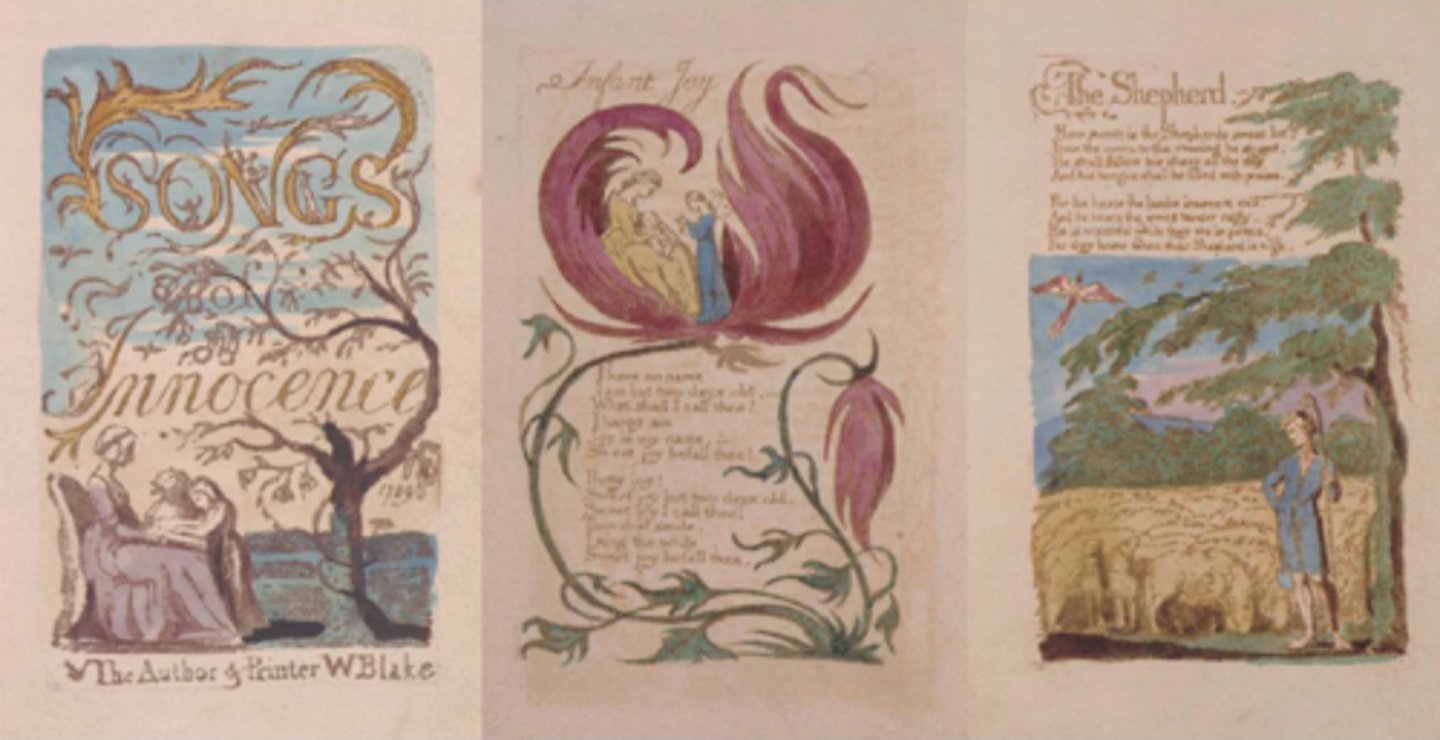 SONGS
of
Innocence
1789
The Author & Printer W Blake
Infant Joy
I have no name
I am but two days old.—
What shall I call thee?
I happy am
Joy is my name,—
Sweet joy befall thee!
Pretty joy!
Sweet joy but two days old.
Sweet joy I call thee:
Thou dost smile.
I sing the while
Sweet joy befall thee.
The Shepherd.
How sweet is the Shepherds sweet lot,
From the morn to the evening he strays:
He shall follow his sheep all the day
And his tongue shall be filled with praise.
For he hears the lambs innocent call.
And he hears the ewes tender reply.
He is watchful while they are in peace,
For they know when their Shepherd is nigh.